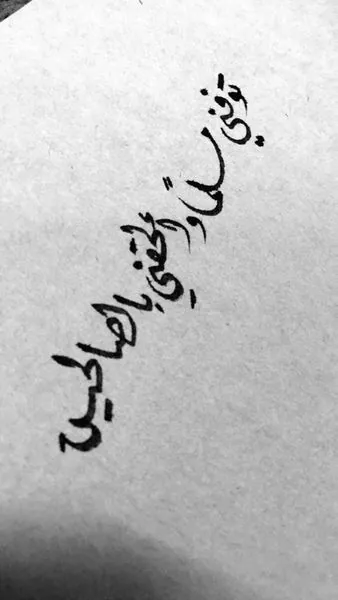 توفني مسلماً وألحقني بالصالحين